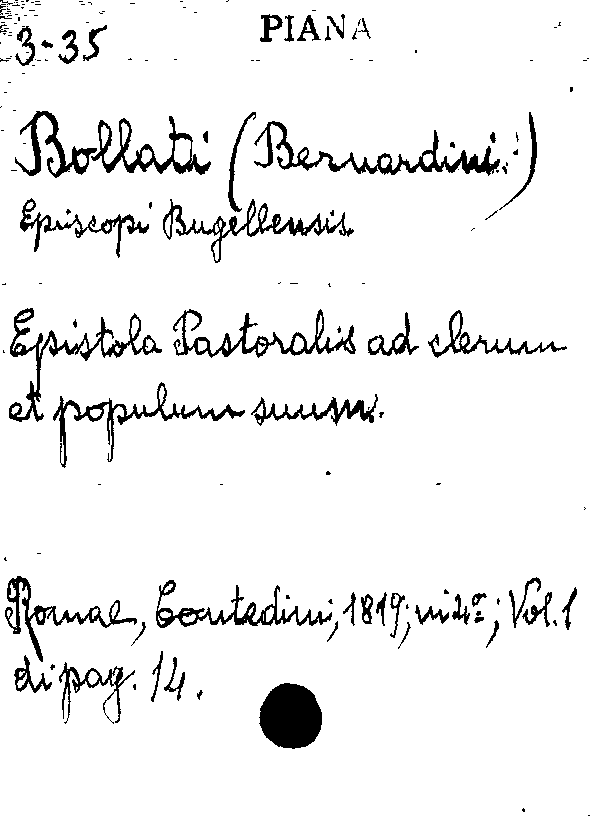 PIANA
3-35
Bollati (Bernardini.)
Episcopi Bugellensis.
Epistola Pastoralis ad clerum
et populum suum.
Romae, Contedini, 1819; in 4º; Vol. 1
di pag. 14.